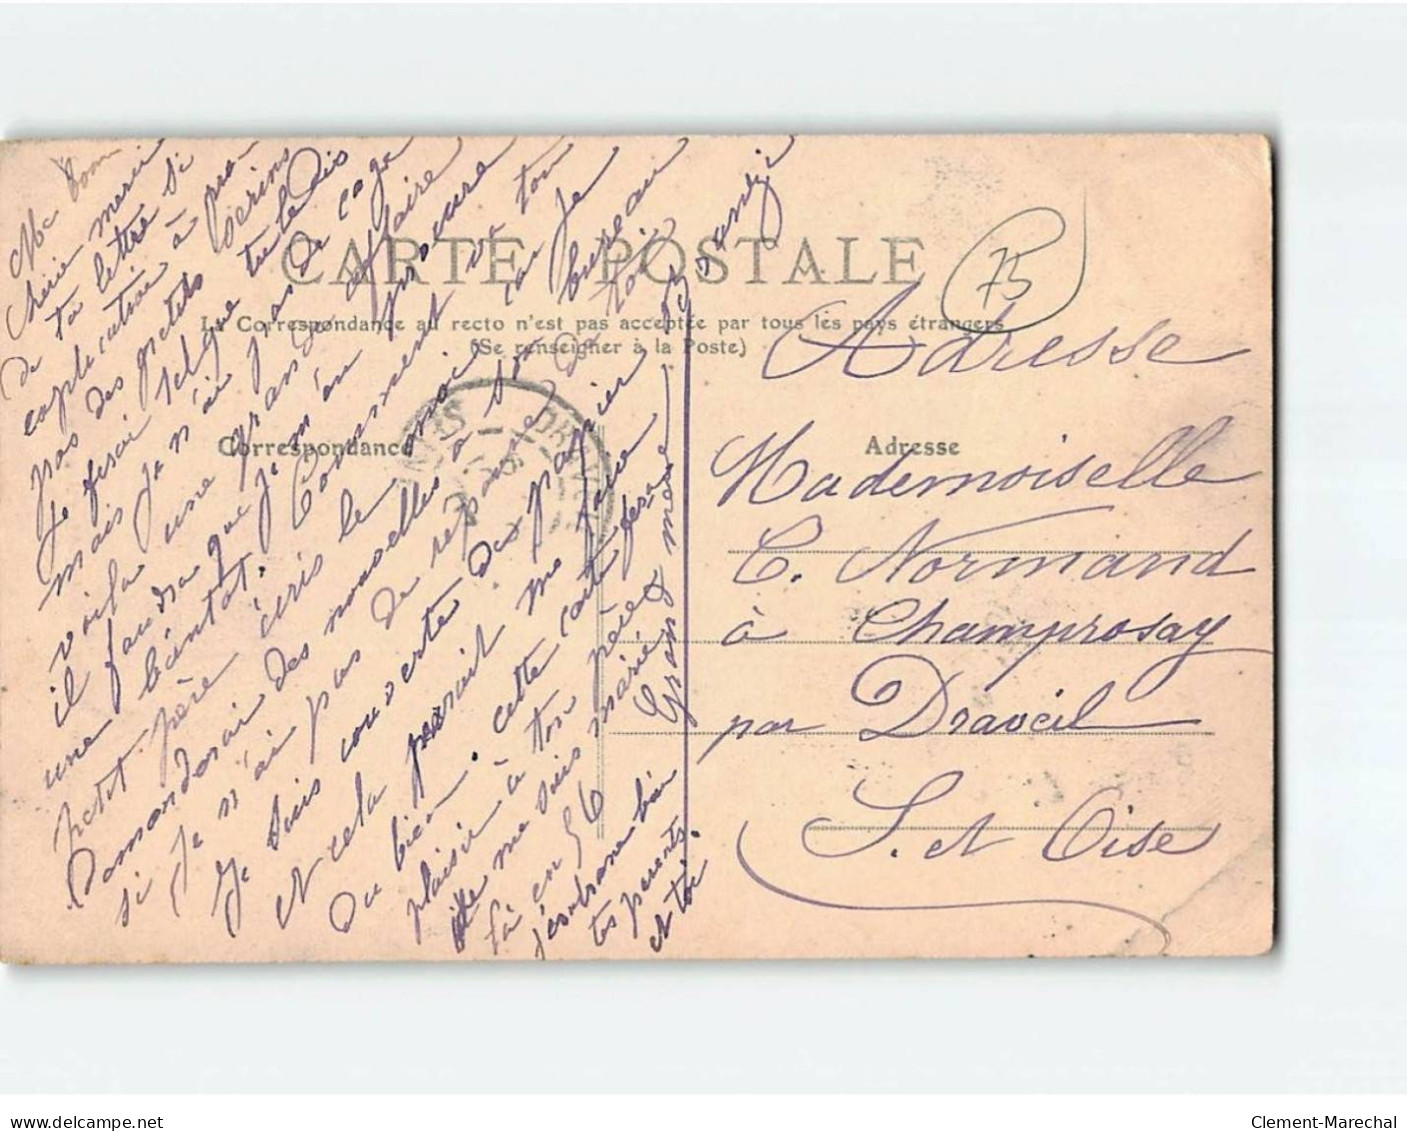 Ma bonne
chérie merci
de ta lettre si
explicative à pro-
pos des petits serins
Je ferai tel que tu le dis
mais je n'ai pas de cage
voilà une grande affaire
il faudra que je m'en procure
une bientôt. Comment va ton
petit père écris le moi car je
demanderai des nouvelles à son bureau
si je n'ai pas de réponse de toi
Je suis couverte des papiers
et cela parait me faire
du bien. cette carte fera
plaisir à ton père
elle me suis marié
là en 56
j'embrasse bien
tes parents.
et toi
Grand mère
CARTE POSTALE
La Correspondance au recto n'est pas acceptée par tous les pays étrangers
(Se renseigner à la Poste)
Correspondance
Adresse
75
Adresse
Mademoiselle
C. Normand
à Champrosay
par Draveil
S. et Oise
DRAVEIL
www.delcampe.net
Clement-Marechal